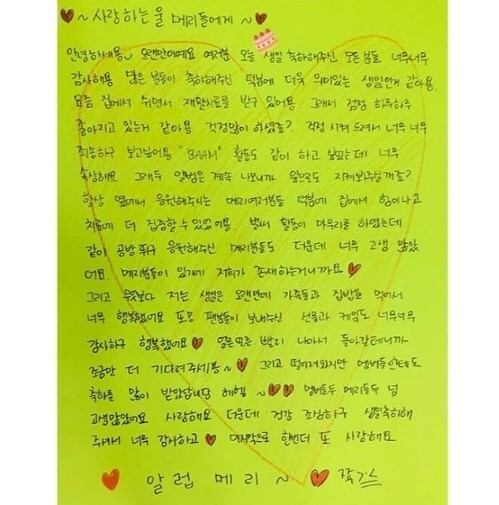 ♥ ~ 사랑하는 울 메리들에게 ~ ♥
안녕하세용~ 오랜만이에요 여러분 오늘 생일 축하해주신 모든분들 너무너무
감사해용 많은 분들이 축하해주신 덕분에 더욱 의미있는 생일인거 같아용.
요즘 집에서 쉬면서 재활치료를 받구 있어용 그래서 점점 하루하루
좋아지고 있는거 같아용 걱정많이 하셨죠? 걱정 시켜 드려서 너무 너무
죄송하구 보고싶어용 "BAAM" 활동도 같이 하고 싶었는데 너무
속상해요 그래두 앨범은 계속 나오니까 앞으로도 지켜봐주실꺼죠?
항상 옆에서 응원해주시는 메리여러분들 덕분에 집에서 힘이나고
치료에 더 집중할 수 있었어용. 벌써 활동이 마무리를 하였는데
같이 공방 뛰구 응원해주신 메리분들도 더운데 너무 고생 많았
어요. 메리분들이 있기에 저희가 존재하는거니까요 ♥
그리고 무엇보다 저는 생일은 오랜만에 가족들과 집밥을 먹어서
너무 행복했어요 또 팬분들이 보내주신 선물과 케익도 너무너무
감사하구 행복했어요 ♥ 얼른 빨리 나아서 돌아갈테니까
조금만 더 기다려주세용~♥ 그리고 떨어져있지만 멤버들한테도
축하를 많이 받았답니당 헤헿 ~ ♥♥ 멤버들두 메리들두 넘
고생많았어요 사랑해요 더운데 건강 조심하구 생일축하해
주셔서 너무 감사하고 ♥ 마지막으로 한번더 또 사랑해요
♥ 알럽 메리 ~ ♥